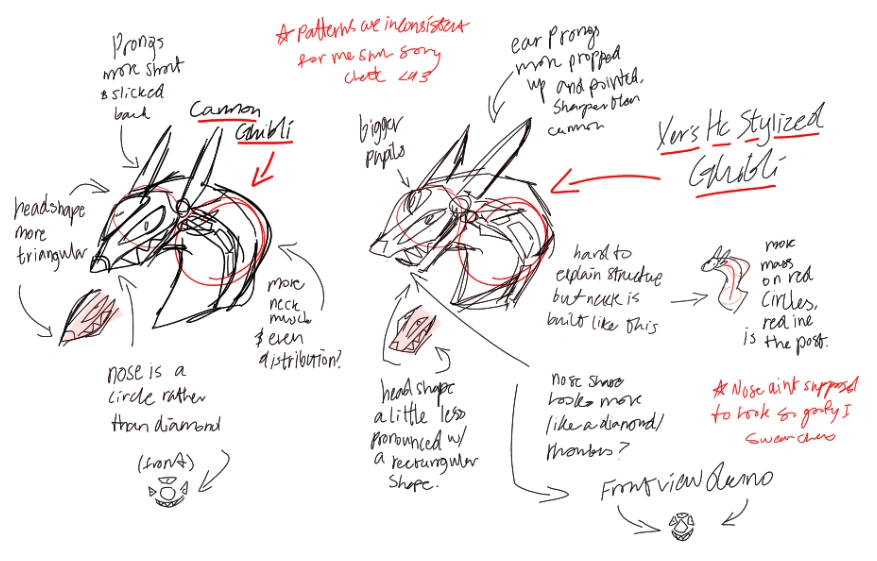 Prongs
more short
& slicked
back
Cannon
Ghibli
headshape
more
triangular
more
neck
muscle
& even
distribution?
nose is a
circle rather
than diamond
(front)
☆ Patterns are inconsistent
for me
sorry
<3
bigger
pupils
ear prongs
more propped
up and pointed,
sharper than
cannon
Xer's Hc Stylized
Ghibli
hard to
explain structure
but neck is
built like this
more
mass
on red
circles,
red line
is the post.
headshape
a little less
pronounced w/
a rectangular
shape.
nose shape
looks more
like a diamond/
rhombus?
☆ Nose aint supposed
to look so goofy I
swear
Front view demo